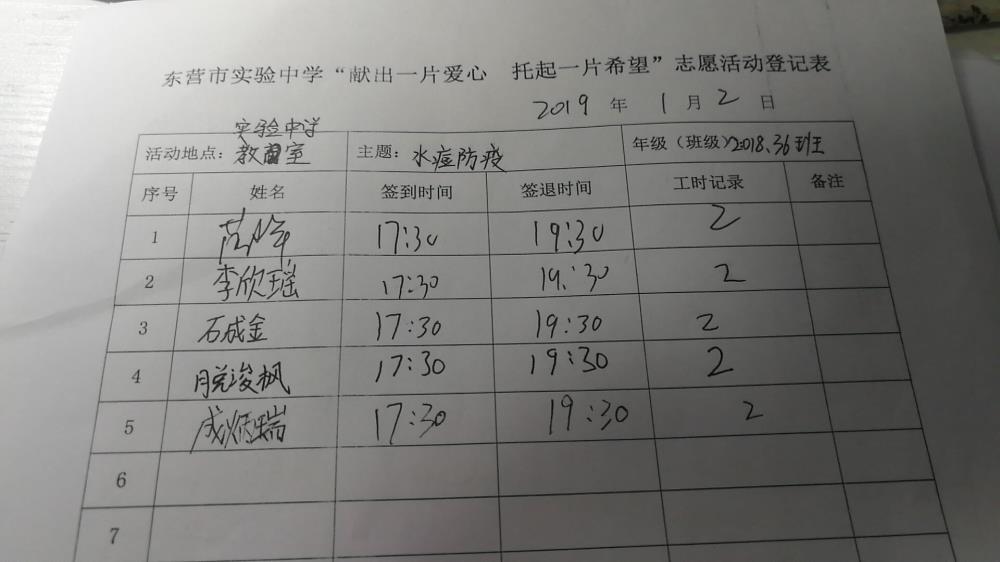 东营市实验中学“献出一片爱心 托起一片希望”志愿活动登记表
2019 年 1 月 2 日
实验中学
活动地点：教室 主题：水痘防疫 年级（班级）2018.36班
序号 姓名 签到时间 签退时间 工时记录 备注
1 17:30 19:30 2
2 李欣瑶 17:30 19:30 2
3 石成金 17:30 19:30 2
4 脱浚枫 17:30 19:30 2
5 17:30 19:30 2
6
7